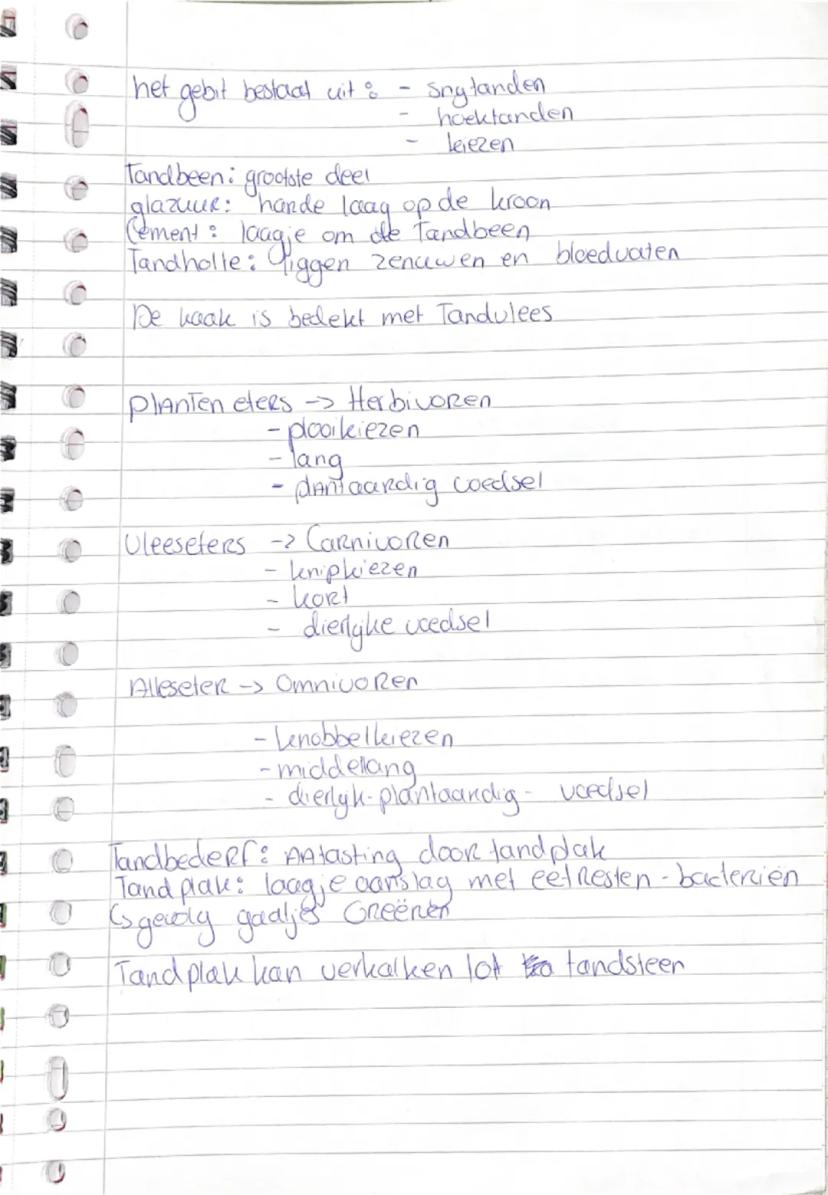 het gebit bestaat uit : - snytanden
- hoektanden
- kiezen
Tandbeen: grootste deel
glazuur: harde laag op de kroon
Cement : laagje om de Tandbeen
Tandholte: liggen zenuwen en bloedvaten
De kaak is bedekt met Tandvlees
PlANTen eteRs -> HerbivoRen
- plooikiezen
- lang
- plantaardig voedsel
Vleeseters -> CarnivoRen
- knipkiezen
- kort
- dierlyke voedsel
AlleseteR -> OmnivoRen
- knobbelkiezen
- middellang
- dierlyk-plantaardig- voedsel
TandbedeRf: AAtasting door tandplak
Tandplak: laagje aanslag met eetResten - bacteriën
↳ gevolg gaatjes Creëren
Tandplak kan verkalken tot tandsteen